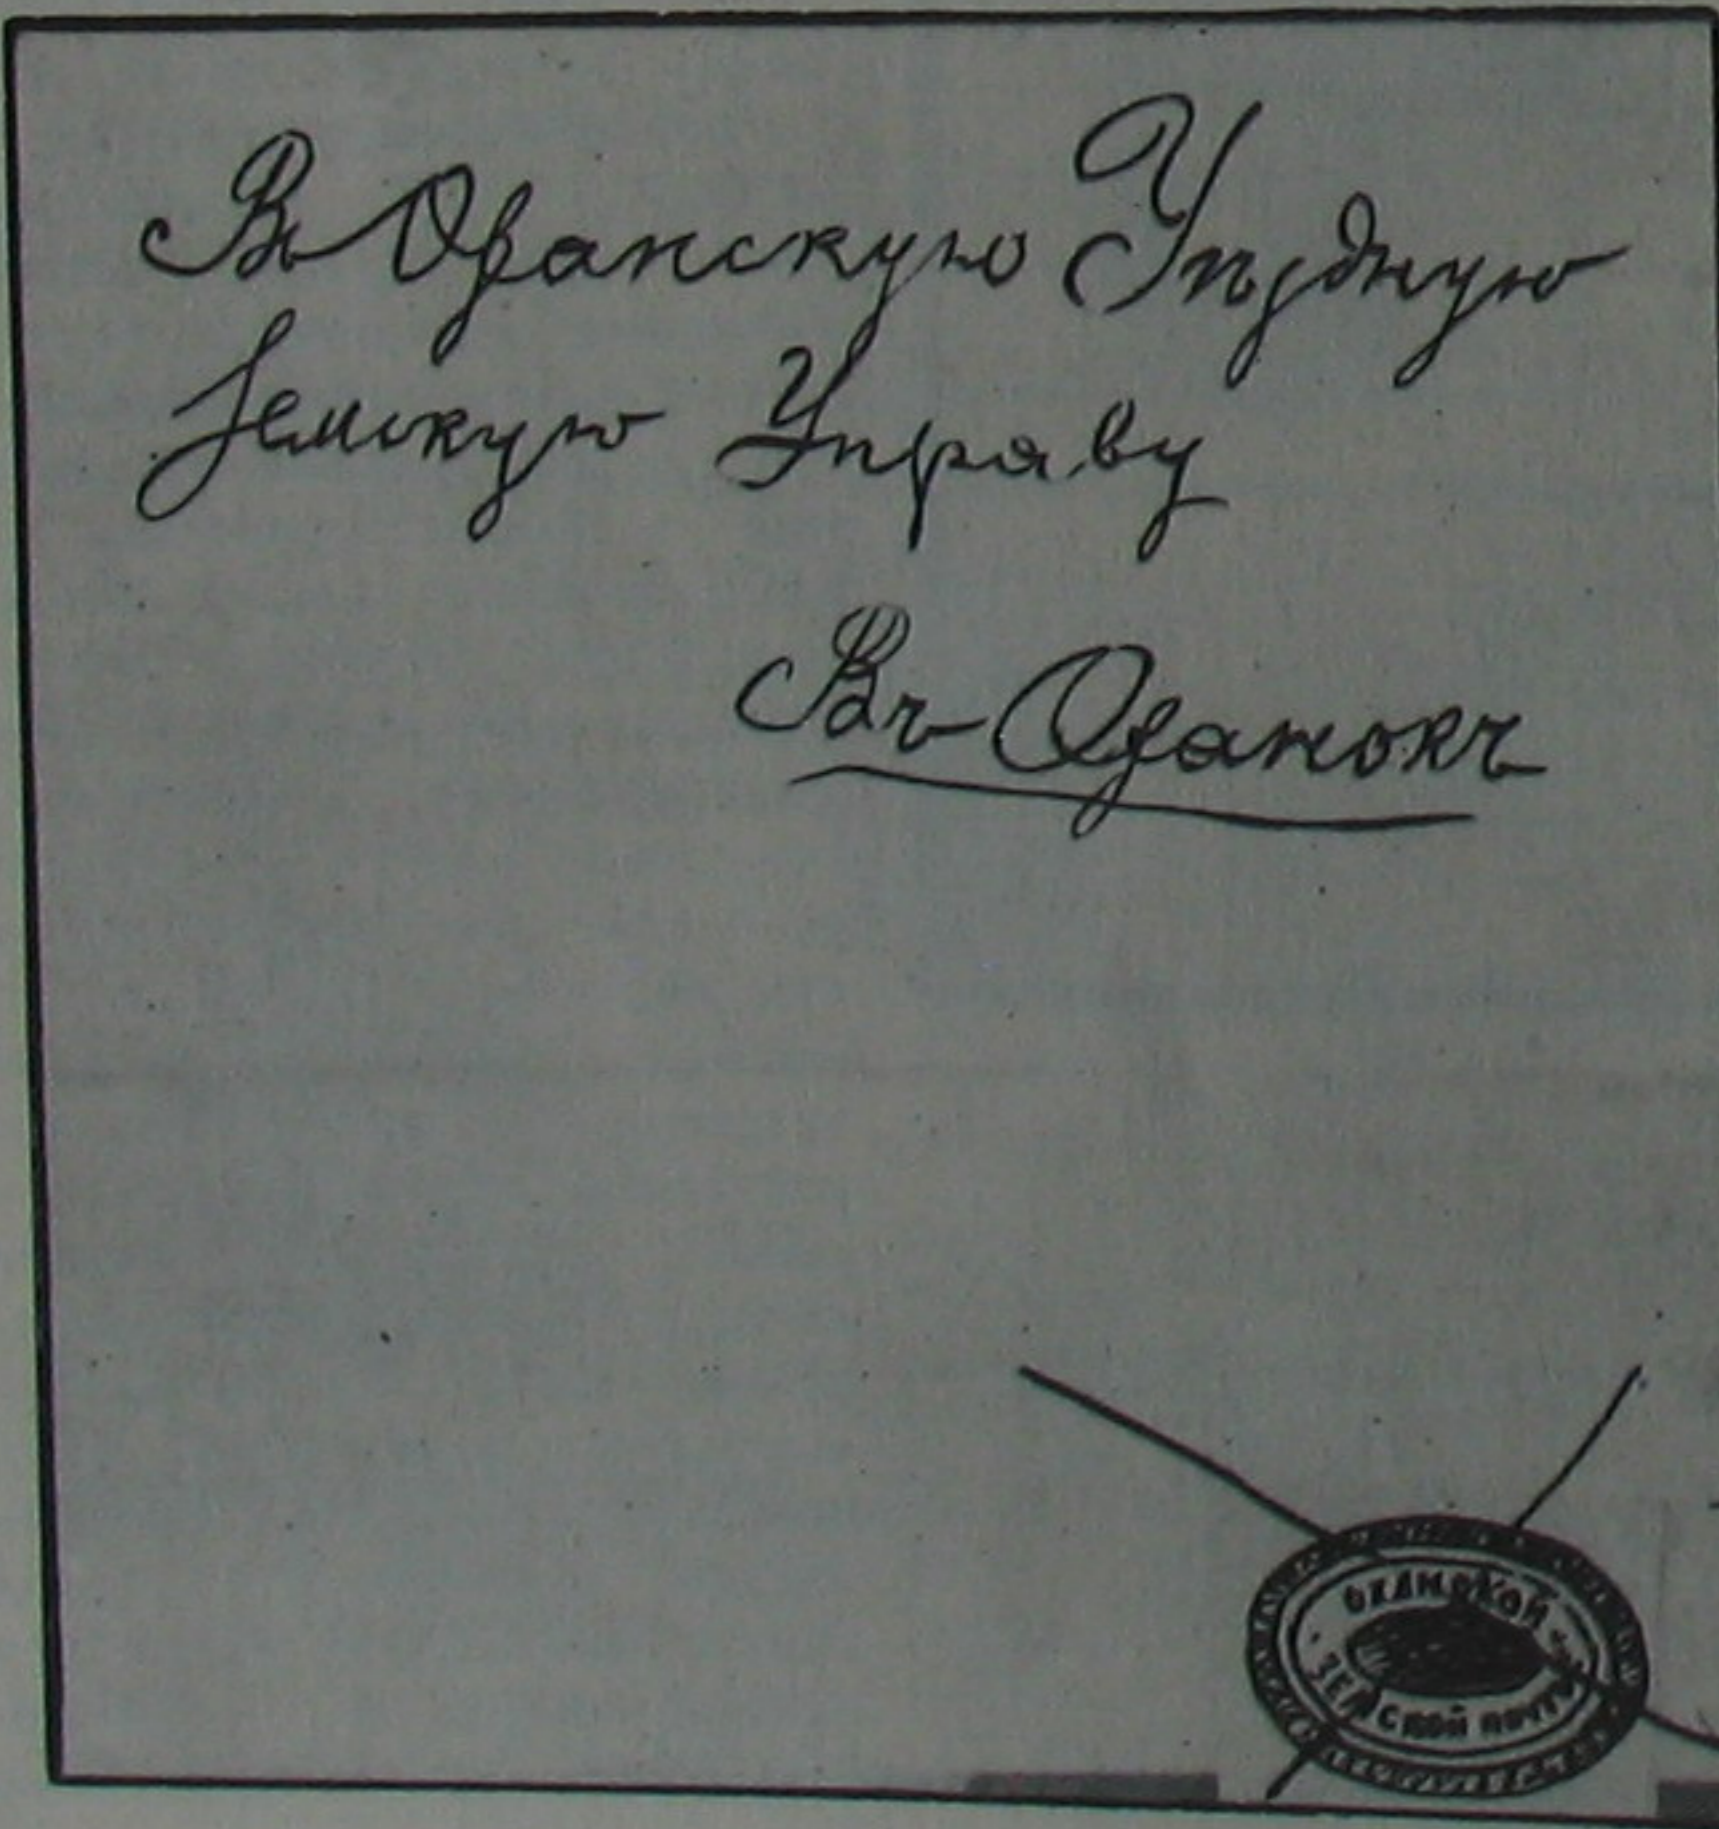 Въ Оханскую Уѣздную
Земскую Управу
Въ Оханскъ
ОХАНСКОЙ
ЗЕМСКОЙ ПОЧТЫ